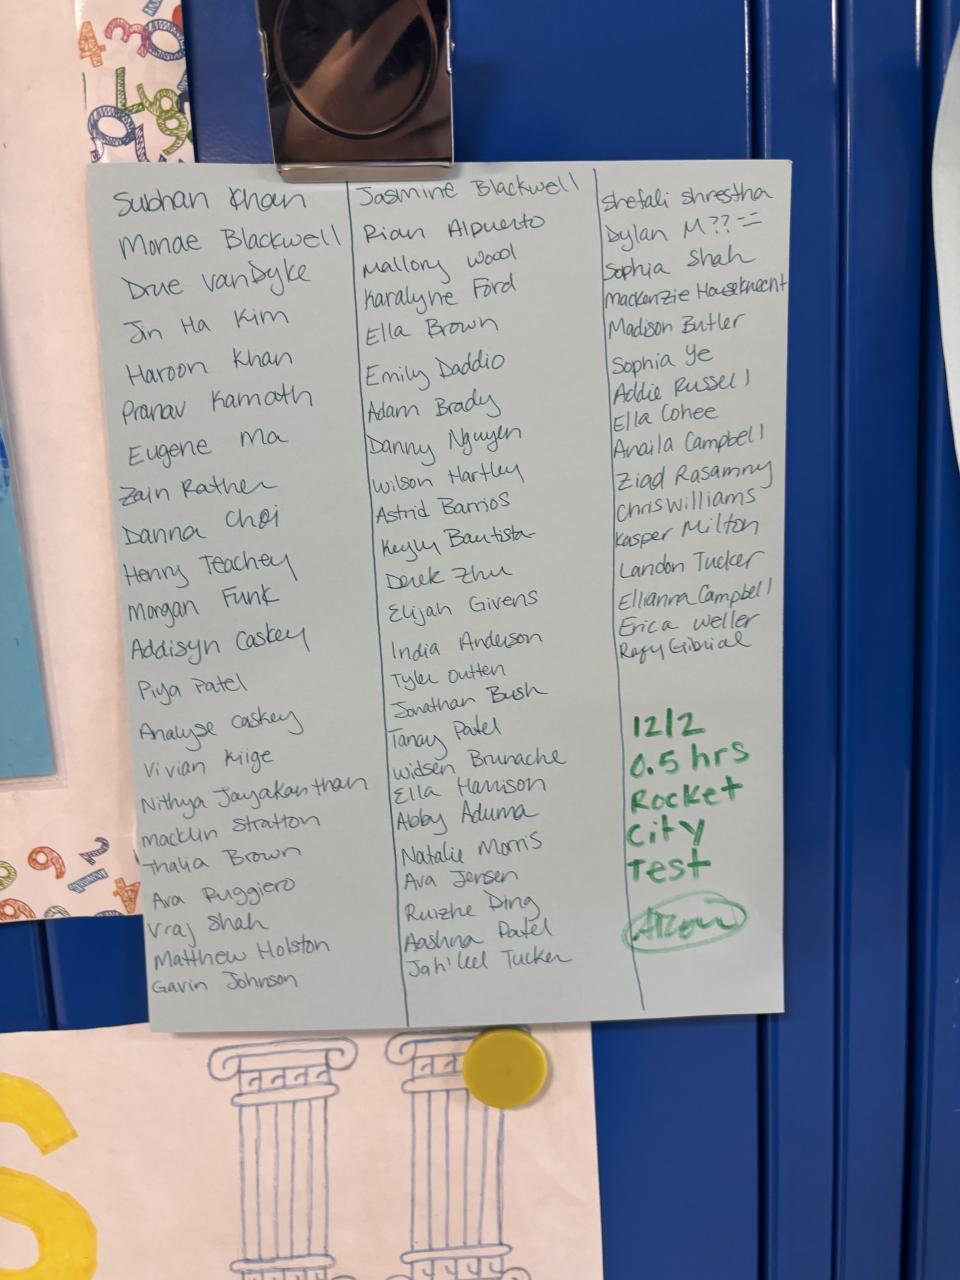 Subhan Khan
Monae Blackwell
Drue VanDyke
Jin Ha Kim
Haroon Khan
Pranav Kamath
Eugene Ma
Zain Rather
Danna Choi
Henry Teachey
Morgan Funk
Addisyn Caskey
Piya Patel
Analyse Caskey
Vivian Kige
Nithya Jayakanthan
Macklin Stratton
Thalia Brown
Ava Ruggiero
Vraj Shah
Matthew Holston
Gavin Johnson
Jasmine Blackwell
Rian Alpuerto
Mallory Wood
Karalyne Ford
Ella Brown
Emily Daddio
Adam Brady
Danny Nguyen
Wilson Hartley
Astrid Barrios
Bautista
Derek Zhu
Elijah Givens
India Anderson
Tyler Outten
Jonathan Bush
Tanay Patel
Widsen Brunache
Ella Harrison
Abby Aduma
Natalie Morris
Ava Jensen
Ruizhe Ding
Aashna Patel
Tucker
Shefali Shrestha
Dylan M??
Sophia Shah
Mackenzie Houseknecht
Madison Butler
Sophia Ye
Addie Russell
Ella Cohee
Anaila Campbell
Ziad Rasamny
Chris Williams
Kasper Milton
Landon Tucker
Ellianna Campbell
Erica Weller
Rafy Gibrial
12/2
0.5 hrs
Rocket
City
Test
S